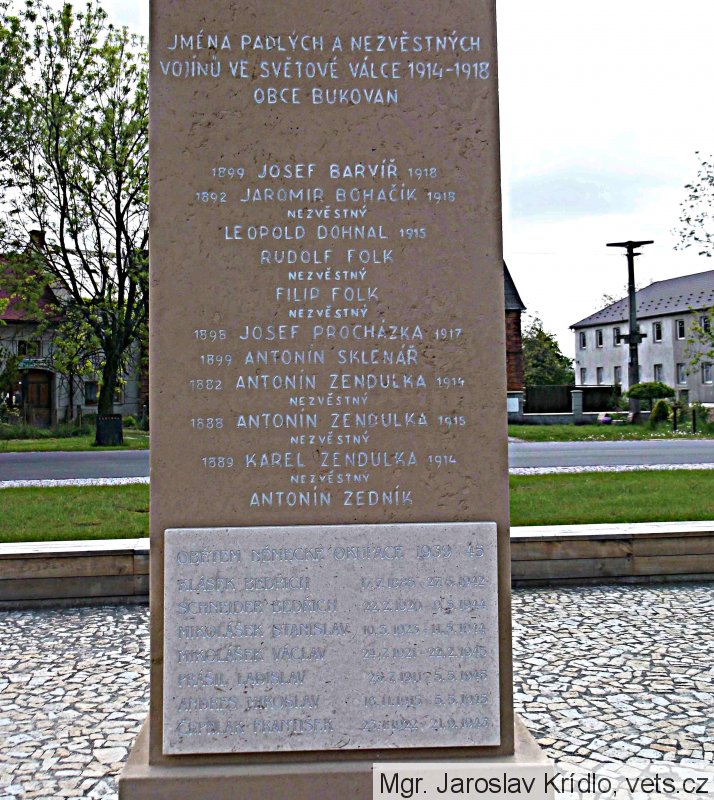 JMÉNA PADLÝCH A NEZVĚSTNÝCH
VOJÍNŮ VE SVĚTOVÉ VÁLCE 1914-1918
OBCE BUKOVAN
1899 JOSEF BARVÍŘ 1918
1892 JAROMIR BOHAČIK 1918
NEZVĚSTNÝ
LEOPOLD DOHNAL 1915
RUDOLF FOLK
NEZVĚSTNÝ
FILIP FOLK
NEZVĚSTNÝ
1898 JOSEF PROCHÁZKA 1917
1899 ANTONÍN SKLENÁŘ
1882 ANTONÍN ZENDULKA 1914
NEZVĚSTNÝ
1888 ANTONÍN ZENDULKA 1915
NEZVĚSTNÝ
1889 KAREL ZENDULKA 1914
NEZVĚSTNÝ
ANTONÍN ZEDNÍK
OBĚTEM NĚMECKÉ OKUPACE 1939-45
KLÁSEK BEDŘICH
SCHNEIDER BEDŘICH
MIKOLÁŠEK STANISLAV
MIKOLÁŠEK VÁCLAV
PRÁŠIL LADISLAV
ANDRES MIROSLAV
FRANTIŠEK
Mgr. Jaroslav Krídlo, vets.cz